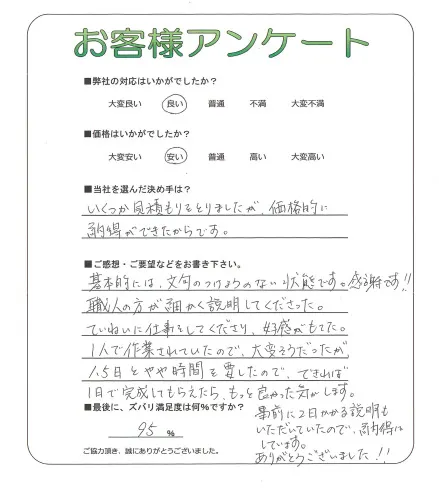 お客様アンケート
■弊社の対応はいかがでしたか?
大変良い 良い 普通 不満 大変不満
■価格はいかがでしたか?
大変安い 安い 普通 高い 大変高い
■当社を選んだ決め手は?
いくつか見積もりをとりましたが、価格的に
納得ができたからです。
■ご感想・ご要望などをお書き下さい。
基本的には、文句のつけようのない状態です。感謝です!!
職人の方が細かく説明してくださった。
ていねいに仕事をしてくださり、好感がもてた。
1人で作業されていたので、大変そうだったが、
1.5日とやや時間を要したので、できれば
1日で完成してもらえたら、もっと良かった気がします。
■最後に、ズバリ満足度は何%ですか?
95 %
事前に2日かかる説明も
いただいていたので、納得は
しています。
ありがとうございました!!
ご協力頂き、誠にありがとうございました。